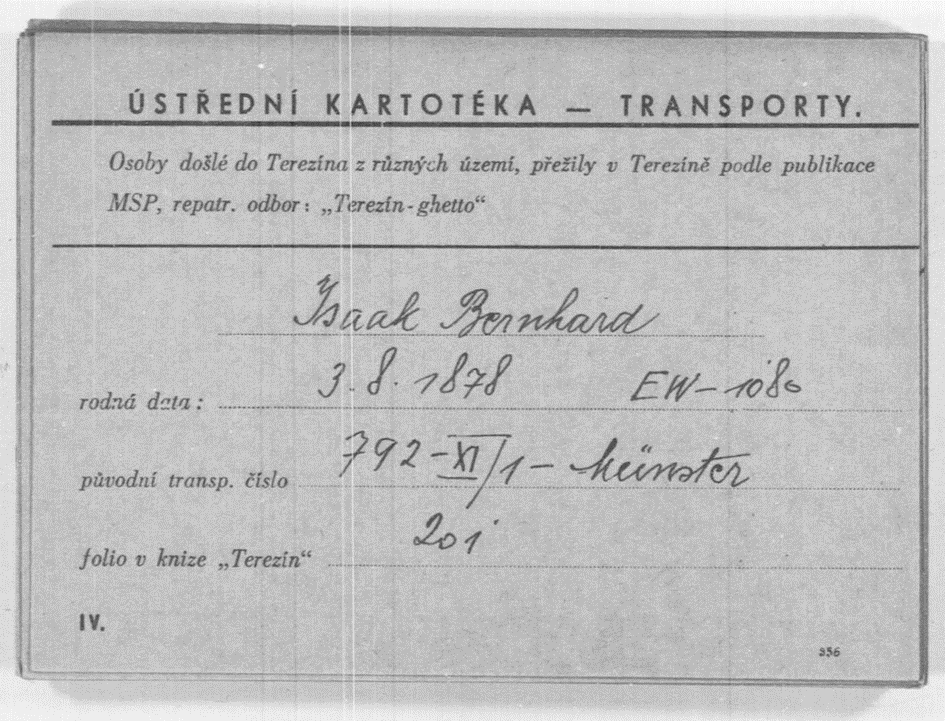 ÚSTŘEDNÍ KARTOTÉKA — TRANSPORTY.
Osoby došlé do Terezína z různých území, přežily v Terezíně podle publikace
MSP, repatr. odbor: „Terezín-ghetto“
Isaak Bernhard
rodná data: 3. 8. 1878 EW-1080
původní transp. číslo 792-XI/1- Münster
folio v knize „Terezín“ 201
IV.
336